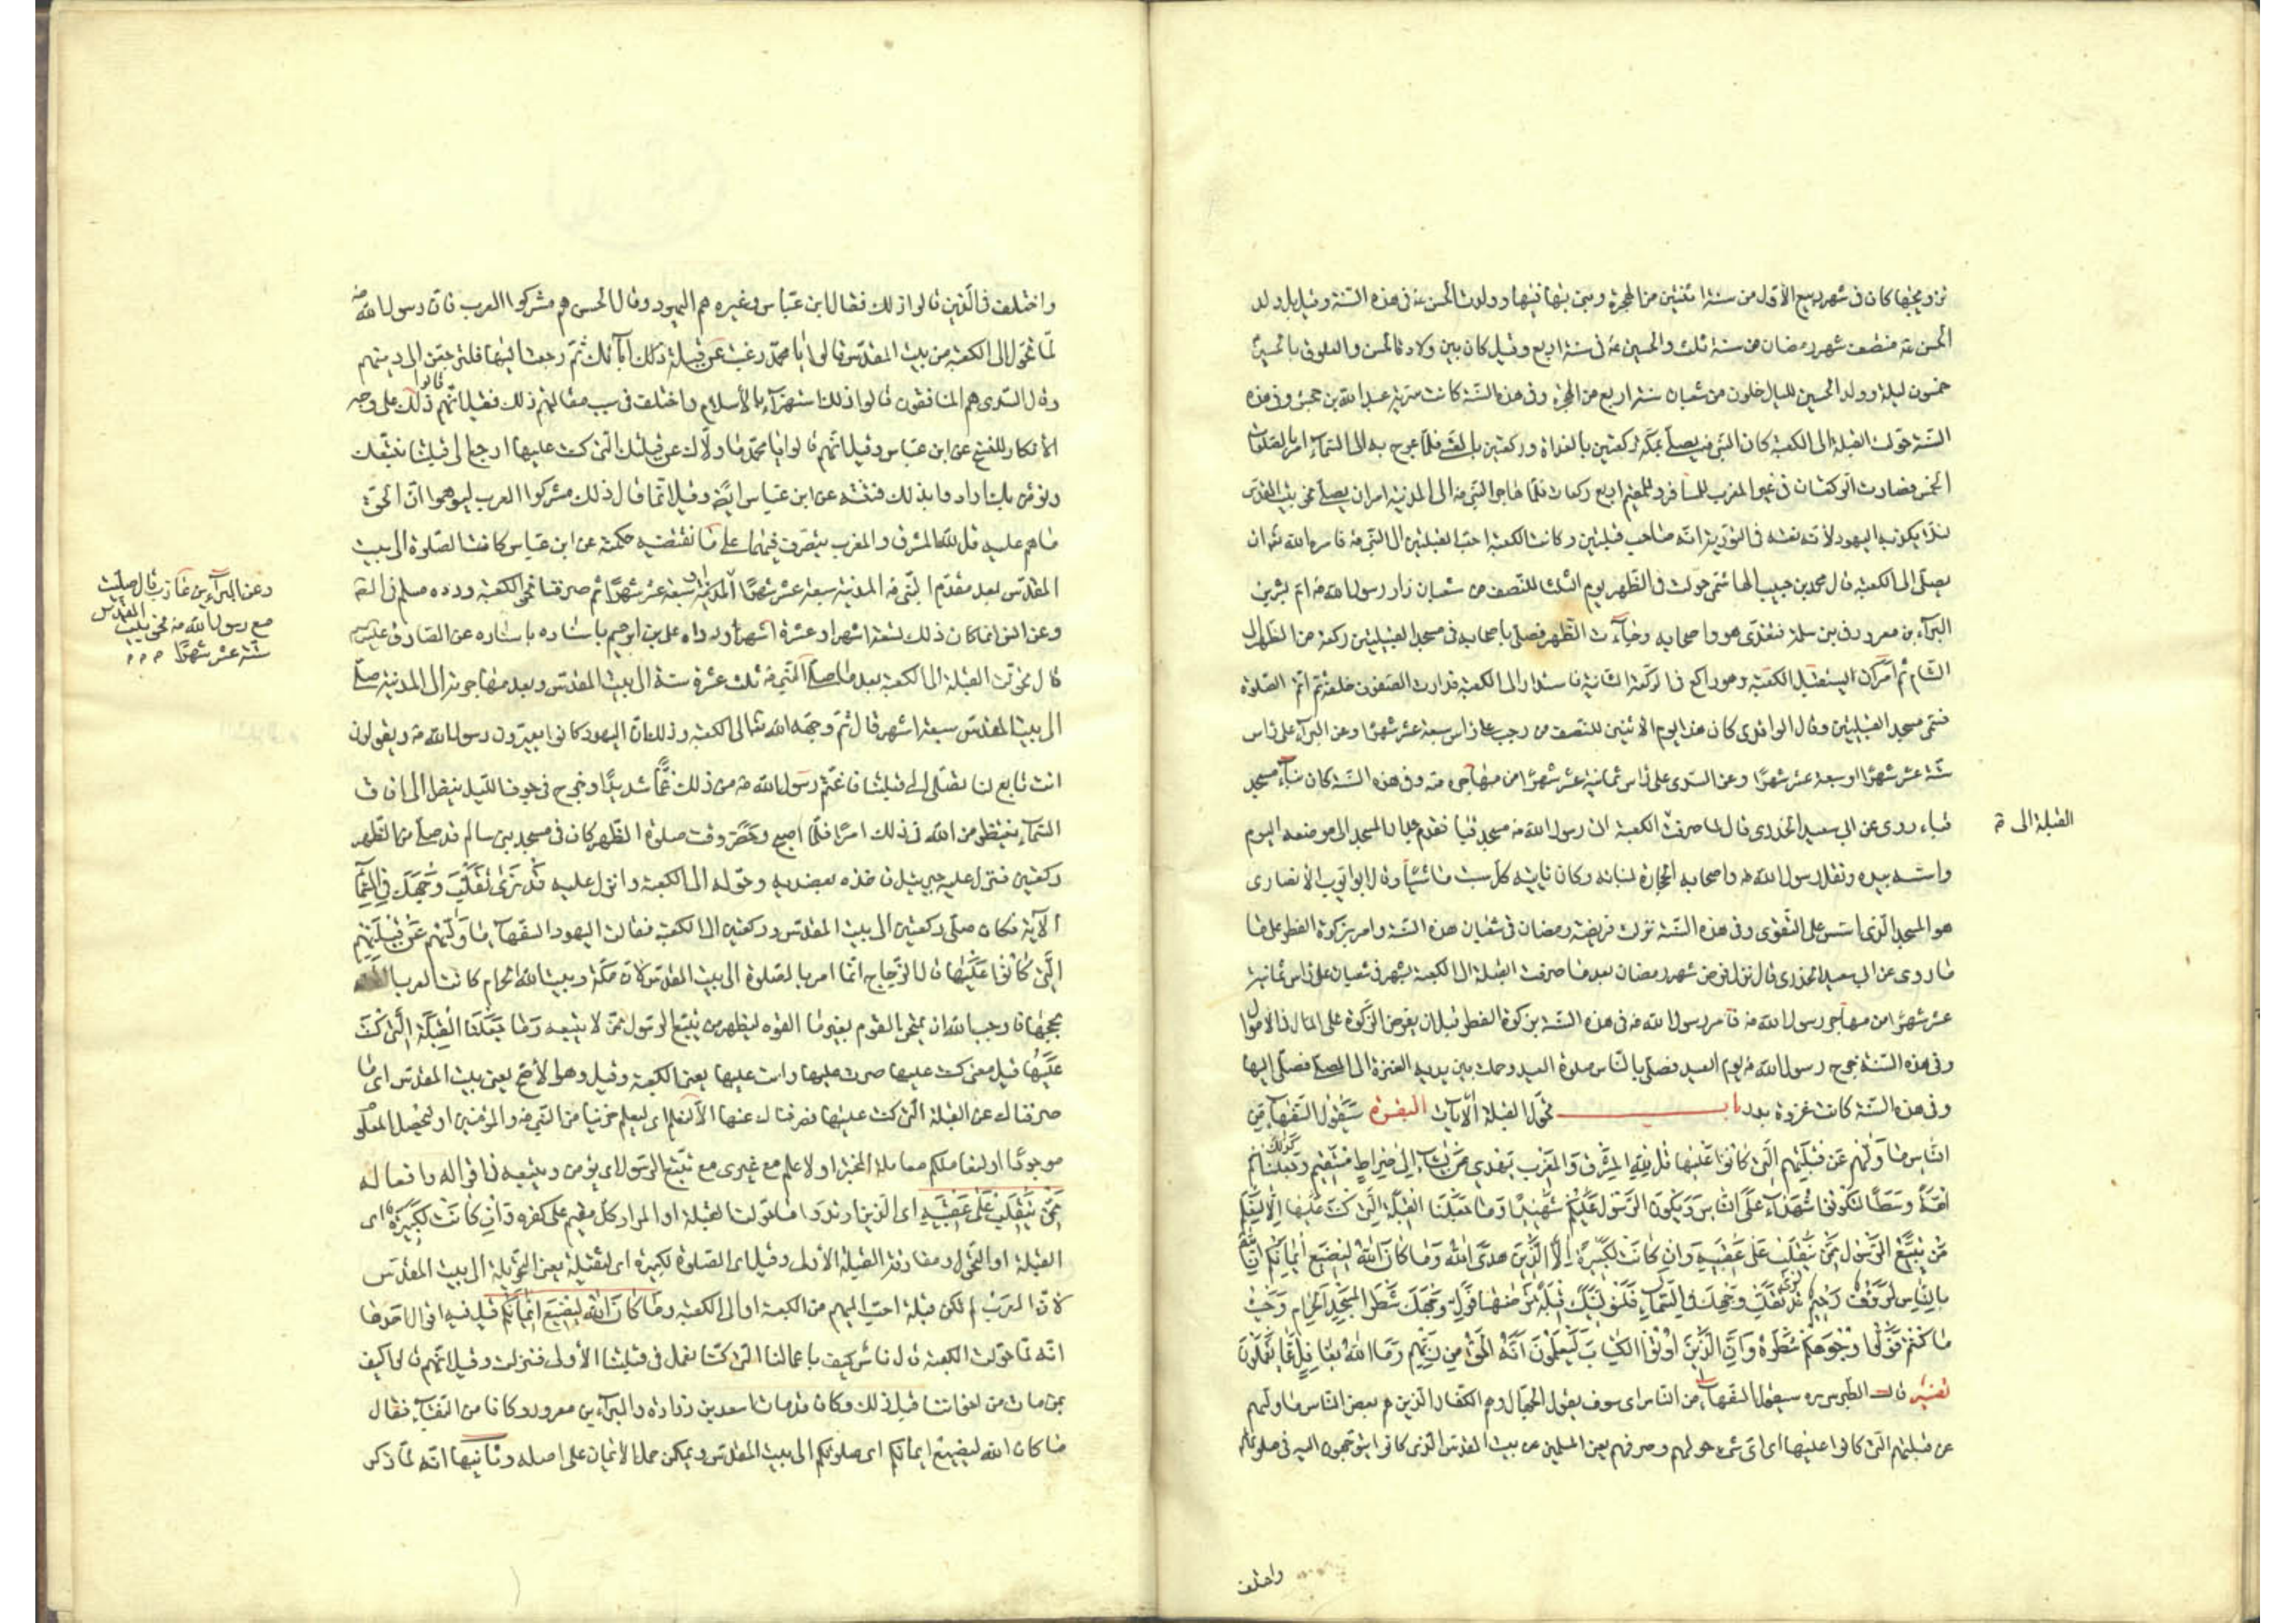 تزويجها كان في شهر ربيع الأول من سنة اثنتين من الهجرة وبنى بها فيها وولدت الحسن ع في هذه السنة وقيل بل ولد
الحسن ع منتصف شهر رمضان من سنة ثلث والحسين ع في سنة اربع وقيل كان بين ولادة الحسن والعلوق بالحسين
خمسون ليلة وولد الحسين لليال خلون من شعبان سنة اربع من الهجرة وفي هذه السنة كانت سرية عبد الله بن جحش وفي هذه
السنة حولت القبلة الى الكعبة كان النبي ص يصلي بمكة ركعتين بالغداة وركعتين بالعشي فلما عرج به الى السماء امر بالصلوات
الخمس فصارت الركعتان في غير المغرب للمسافر وللمقيم اربع ركعات فلما هاجر النبي ص الى المدينة امر ان يصلي نحو بيت المقدس
لئلا يكذبه اليهود لأن نعته في التورية انه صاحب قبلتين وكانت الكعبة احب القبلتين الى النبي ص فامره الله تعالى ان
يصلى الى الكعبة قال محمد بن حبيب الهاشمي حولت في الظهر يوم الثلثا للنصف من شعبان زار رسول الله ص ام بشر بن
البراء بن معرور في بني سلمة فتغدى هو واصحابه وجاءت الظهر فصلى باصحابه في مسجد القبلتين ركعتين من الظهر الى
الشام ثم امر ان يستقبل الكعبة وهو راكع في الركعة الثانية فاستدار الى الكعبة فدارت الصفوف خلفه ثم اتم الصلوة
فسمى مسجد القبلتين وقال الواقدي كان هذا يوم الاثنين للنصف من رجب على رأس سبعة عشر شهرا وعن البراء على رأس
ستة عشر شهرا او سبعة عشر شهرا وعن السدى على رأس ثمانية عشر شهرا من مهاجره ص وفي هذه السنة كان بناء مسجد
قباء روى عن ابي سعيد الخدرى قال لما صرفت الكعبة اتى رسول الله ص مسجد قبا فقدم جدار المسجد الى موضعه اليوم
واسسه بيده ونقل رسول الله ص واصحابه الحجارة لبنائه وكان يأتيه كل سبت ماشيا وقال ابو ايوب الأنصارى
هو المسجد الذى اسس على التقوى وفي هذه السنة نزلت فريضة رمضان في شعبان هذه السنة وامر بزكوة الفطر على ما
ما روى عن ابي سعيد الخدرى قال نزل فرض شهر رمضان بعد ما صرفت القبلة الى الكعبة بشهر في شعبان على رأس ثمانية
عشر شهرا من مهاجر رسول الله ص فامر رسول الله ص في هذه السنة بزكوة الفطر قبل ان يفرض الزكوة على المال في الاموال
وفي هذه السنة خرج رسول الله ص يوم العيد فصلى بالناس صلوة العيد وحملت بين يديه العنزة الى المصلى فصلى اليها
وفي هذه السنة كانت غزوة بدر باب تحول القبلة الآيات البقرة سَيَقُولُ السُّفَهَاءُ مِنَ
النَّاسِ مَا وَلّٰهُمْ عَنْ قِبْلَتِهِمُ الَّتي كَانُوا عَلَيْهَا قُلْ لِلّٰهِ الْمَشْرِقُ وَالْمَغْرِبُ يَهْدي مَنْ يَشَاءُ اِلٰى صِرَاطٍ مُسْتَقيمٍ وَكَذٰلِكَ جَعَلْنَاكُمْ
اُمَّةً وَسَطًا لِتَكُونُوا شُهَدَاءَ عَلَى النَّاسِ وَيَكُونَ الرَّسُولُ عَلَيْكُمْ شَهِيدًا وَمَا جَعَلْنَا الْقِبْلَةَ الَّتي كُنْتَ عَلَيْهَا اِلَّا لِنَعْلَمَ
مَنْ يَتَّبِعُ الرَّسُولَ مِمَّنْ يَنْقَلِبُ عَلٰى عَقِبَيْهِ وَاِنْ كَانَتْ لَكَبيرَةً اِلَّا عَلَى الَّذينَ هَدَى اللّٰهُ وَمَا كَانَ اللّٰهُ لِيُضيعَ اِيمَانَكُمْ اِنَّ اللّٰهَ
بِالنَّاسِ لَرَؤُفٌ رَحيمٌ قَدْ نَرٰى تَقَلُّبَ وَجْهِكَ فِي السَّمَاءِ فَلَنُوَلِّيَنَّكَ قِبْلَةً تَرْضٰيهَا فَوَلِّ وَجْهَكَ شَطْرَ الْمَسْجِدِ الْحَرَامِ وَحَيْثُ
مَا كُنْتُمْ فَوَلُّوا وُجُوهَكُمْ شَطْرَهُ وَاِنَّ الَّذينَ اُوتُوا الْكِتَابَ لَيَعْلَمُونَ اَنَّهُ الْحَقُّ مِنْ رَبِّهِمْ وَمَا اللّٰهُ بِغَافِلٍ عَمَّا يَعْمَلُونَ
تفسير قال الطبرسي ره سيقول السفهاء من الناس اى سوف يقول الجهال وهم الكفار الذين هم بعض الناس ما وليهم
عن قبلتهم التى كانوا عليها اى اى شىء حولهم وصرفهم يعنى المسلمين عن بيت المقدس الذى كانوا يتوجهون اليه في صلوتهم
القبلة الى ق
واختلف
واختلف في الذين قالوا ذلك فقال ابن عباس وغيره هم اليهود وقال الحسن هم مشركوا العرب فان رسول الله ص
لما تحول الى الكعبة من بيت المقدس قالوا يا محمد رغبت عن قبلة آبائك ثم رجعت اليها فلترجعن الى دينهم
وقال السدى هم المنافقون قالوا ذلك استهزاء بالأسلام واختلف في سبب مقالتهم ذلك فقيل انهم قالوا ذلك على وجه
الأنكار للنسخ عن ابن عباس وقيل انهم قالوا يا محمد ما ولاك عن قبلتك التى كنت عليها ارجع الى قبلتنا نتبعك
ونؤمن بك ارادوا بذلك فتنته عن ابن عباس ايضا وقيل انما قال ذلك مشركوا العرب ليوهموا ان الحق
ما هم عليه قل لله المشرق والمغرب يتصرف فيهما على ما تقتضيه حكمته عن ابن عباس كانت الصلوة الى بيت
المقدس بعد مقدم النبي ص المدينة سبعة عشر شهرا
وعن انس انما كان ذلك تسعة اشهر او عشرة اشهر ورواه على بن ابرهيم باسناده عن الصادق ع
قال تحولت القبلة الى الكعبة بعد ما صلى النبي ص ثلث عشرة سنة الى بيت المقدس وبعد مهاجرته الى المدينة صلى
الى بيت المقدس سبعة اشهر قال ثم وجهه الله تعالى الى الكعبة وذلك ان اليهود كانوا يعيرون رسول الله ص ويقولون
انت تابع لنا تصلى الى قبلتنا فاغتم رسول الله ص من ذلك غما شديدا وخرج في جوف الليل ينظر الى افاق
السماء ينتظر من الله في ذلك امرا فلما اصبح وحضر وقت صلوة الظهر كان في مسجد بنى سالم قد صلى من الظهر
ركعتين فنزل عليه جبرئيل فاخذه بعضديه وحوله الى الكعبة وانزل عليه قَدْ نَرٰى تَقَلُّبَ وَجْهِكَ فِي السَّمَاءِ
الآية فكان صلى ركعتين الى بيت المقدس وركعتين الى الكعبة فقالت اليهود السفهاء مَا وَلّٰيهُمْ عَنْ قِبْلَتِهِمُ
الَّتي كَانُوا عَلَيْهَا قال الزجاج انما امر بالصلوة الى بيت المقدس لان مكة وبيت الله الحرام كانت العرب
بحجها فاوجب الله ان يتحى القوم بغير ما الفوه ليظهر من يتبع الرسول ممن لا يتبعه وَمَا جَعَلْنَا الْقِبْلَةَ الَّتي كُنْتَ
عَلَيْهَا قيل معنى كنت عليها صرت عليها وانت عليها يعنى الكعبة وقيل وهو الأصح يعنى بيت المقدس اى ما
صرفناك عن القبلة التى كنت عليها فصرفناك عنها الا لنعلم اى ليعلم حزبنا من النبي ص والمؤمنين او ليحصل المعلوم
موجودا او لنعاملكم معاملة المختبر او لاعلم مع غيرى مع يتبع الرسول اى يؤمن ويتبعه في اقواله وافعاله
مِمَّنْ يَنْقَلِبُ عَلٰى عَقِبَيْهِ اى الذين ارتدوا لما تولت القبلة او المراد كل مقيم على كفره وَاِنْ كَانَتْ لَكَبيرَةً اى
القبلة او التحول ومفارقة القبلة الأولى وقيل اى الصلوة لكبيرة اى لثقيلة يعنى التحويلة الى بيت المقدس
لان العرب لم تكن قبلة احب اليهم من الكعبة او الى الكعبة وَمَا كَانَ اللّٰهُ لِيُضيعَ اِيمَانَكُمْ قيل فيه اقوال احدها
انه لما حولت الكعبة قال ناس كيف باعمالنا التى كنا نعمل في قبلتنا الأولى فنزلت وقيل انهم قالوا كيف
بمن مات من اخواننا قبل ذلك وكان قد مات اسعد بن زرارة والبراء بن معرور وكانا من النقباء فقال
ما كان الله ليضيع ايمانكم اى صلوتكم الى بيت المقدس ويمكن حمل الأيمان على اصله وثانيها انه لما ذكر
وعن البراء بن عازب قال صليت
مع رسول الله ص نحو بيت المقدس
ستة عشر شهرا